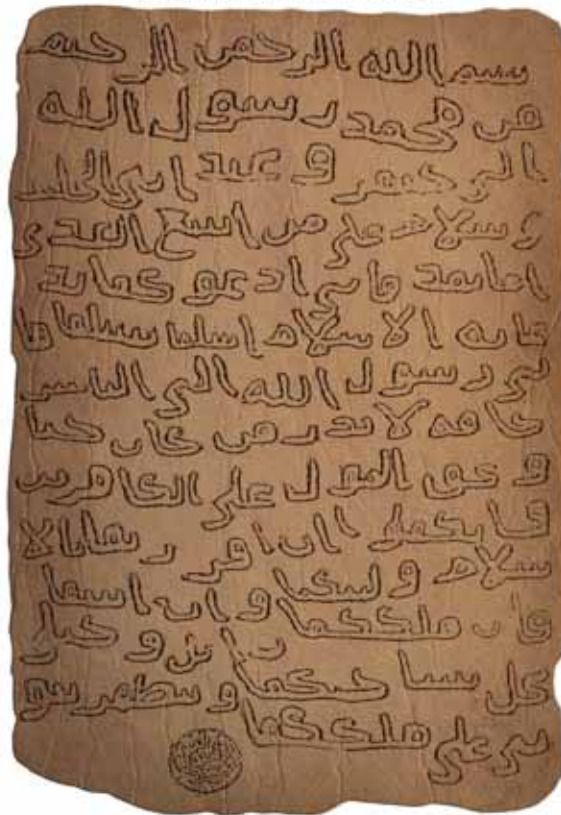 بسم الله الرحمن الرحيم
من محمد رسول الله
الى جيفر و عبد ابني الجلند
و سلام على من اتبع الهدى
اما بعد فاني ادعوكما بد
عايه الاسلام اسلما تسلما فا
ني رسول الله الى الناس
كافه لانذر من كان حيا
و يحق القول على الكافرين
فانكما ان اقررتما بالا
سلام وليتكما و ان ابيتما
فان ملككما زائل و خيلي
تحل بساحتكما و تظهر نبو
تي على ملككما